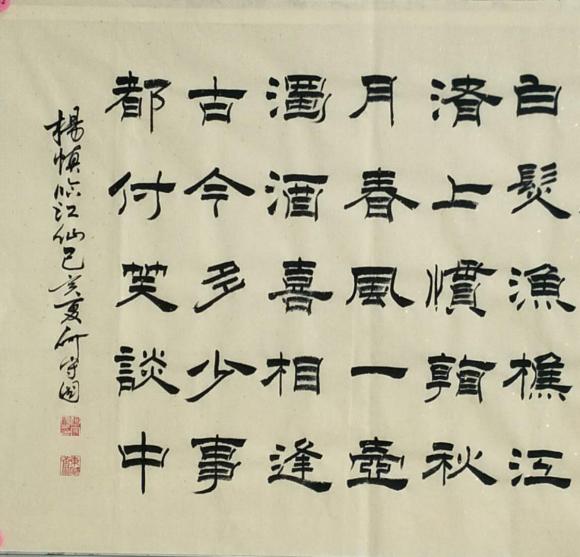 白髮漁樵江
渚上慣翰秋
月春風一壺
濁酒喜相逢
古今多少事
都付笑談中
楊慎臨江仙己亥夏何守國